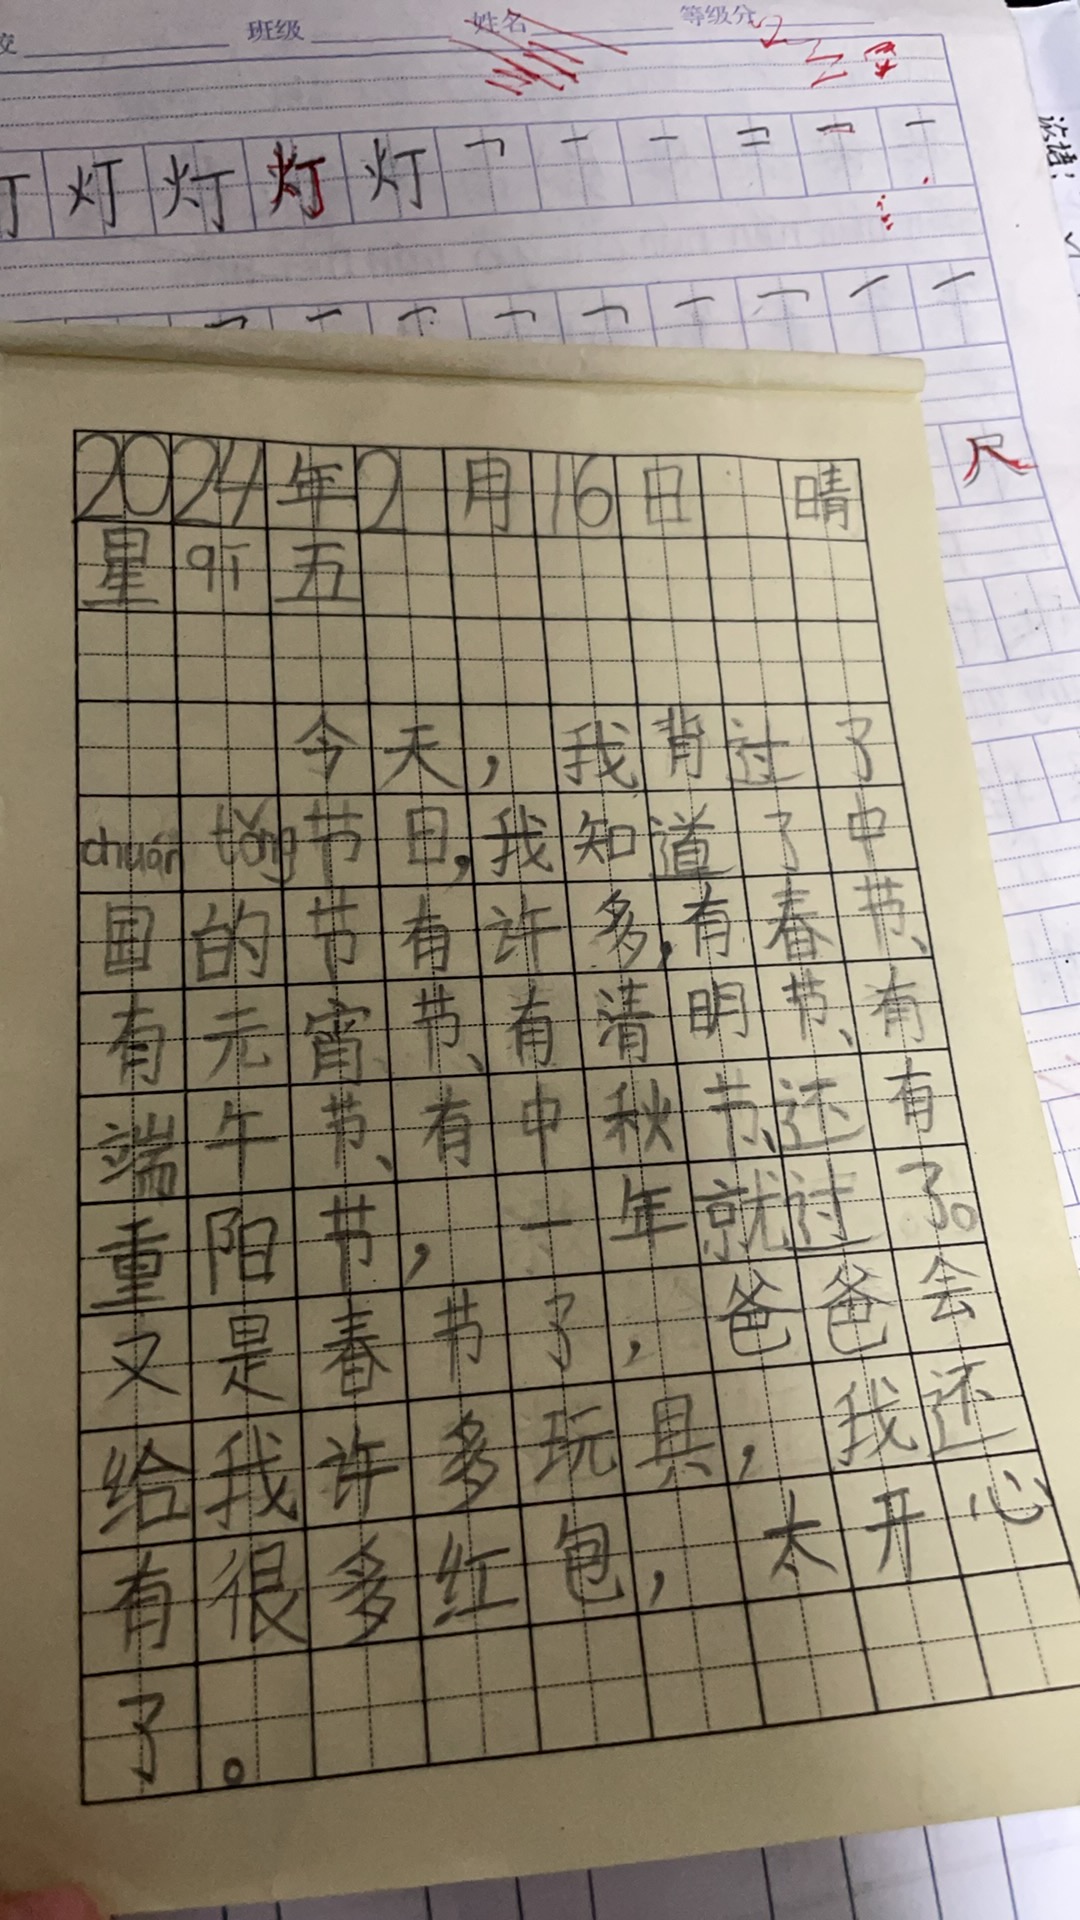 班级 姓名 等级分
灯 灯 灯 灯
尺
2024年2月16日 晴
星qī五
今天，我背过了
chuán tǒng节日，我知道了中
国的节有许多，有春节、
有元宵节、有清明节、有
端午节、有中秋节、还有
重阳节，一年就过了。
又是春节了，爸爸会
给我许多玩具，我还
有很多红包，太开心
了。